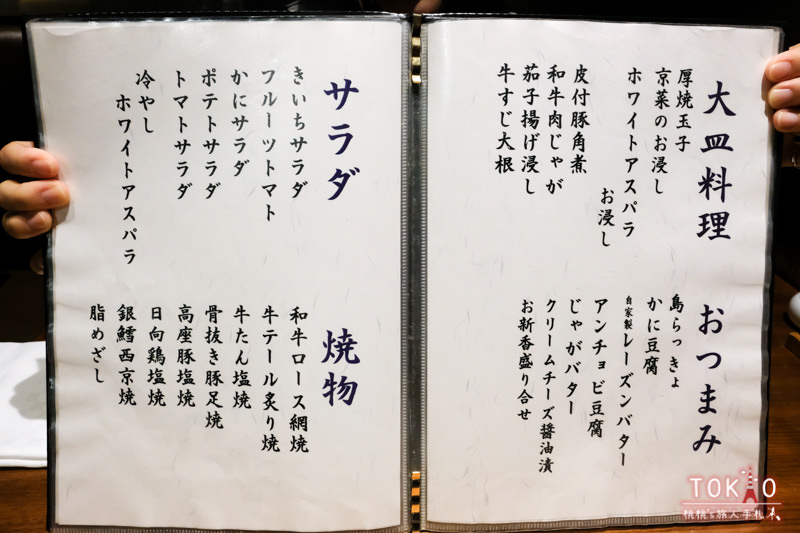 大皿料理
厚焼玉子
京菜のお浸し
ホワイトアスパラ
お浸し
皮付豚角煮
和牛肉じゃが
茄子揚げ浸し
牛すじ大根
おつまみ
島らっきょ
かに豆腐
自家製レーズンバター
アンチョビ豆腐
じゃがバター
クリームチーズ醤油漬
お新香盛り合せ
サラダ
きいちサラダ
フルーツトマト
かにサラダ
ポテトサラダ
トマトサラダ
冷やし
ホワイトアスパラ
焼物
和牛ロース網焼
牛テール炙り焼
牛たん塩焼
骨抜き豚足焼
高座豚塩焼
日向鶏塩焼
銀鱈西京焼
脂めざし
TOKYO
桃桃's旅人手札